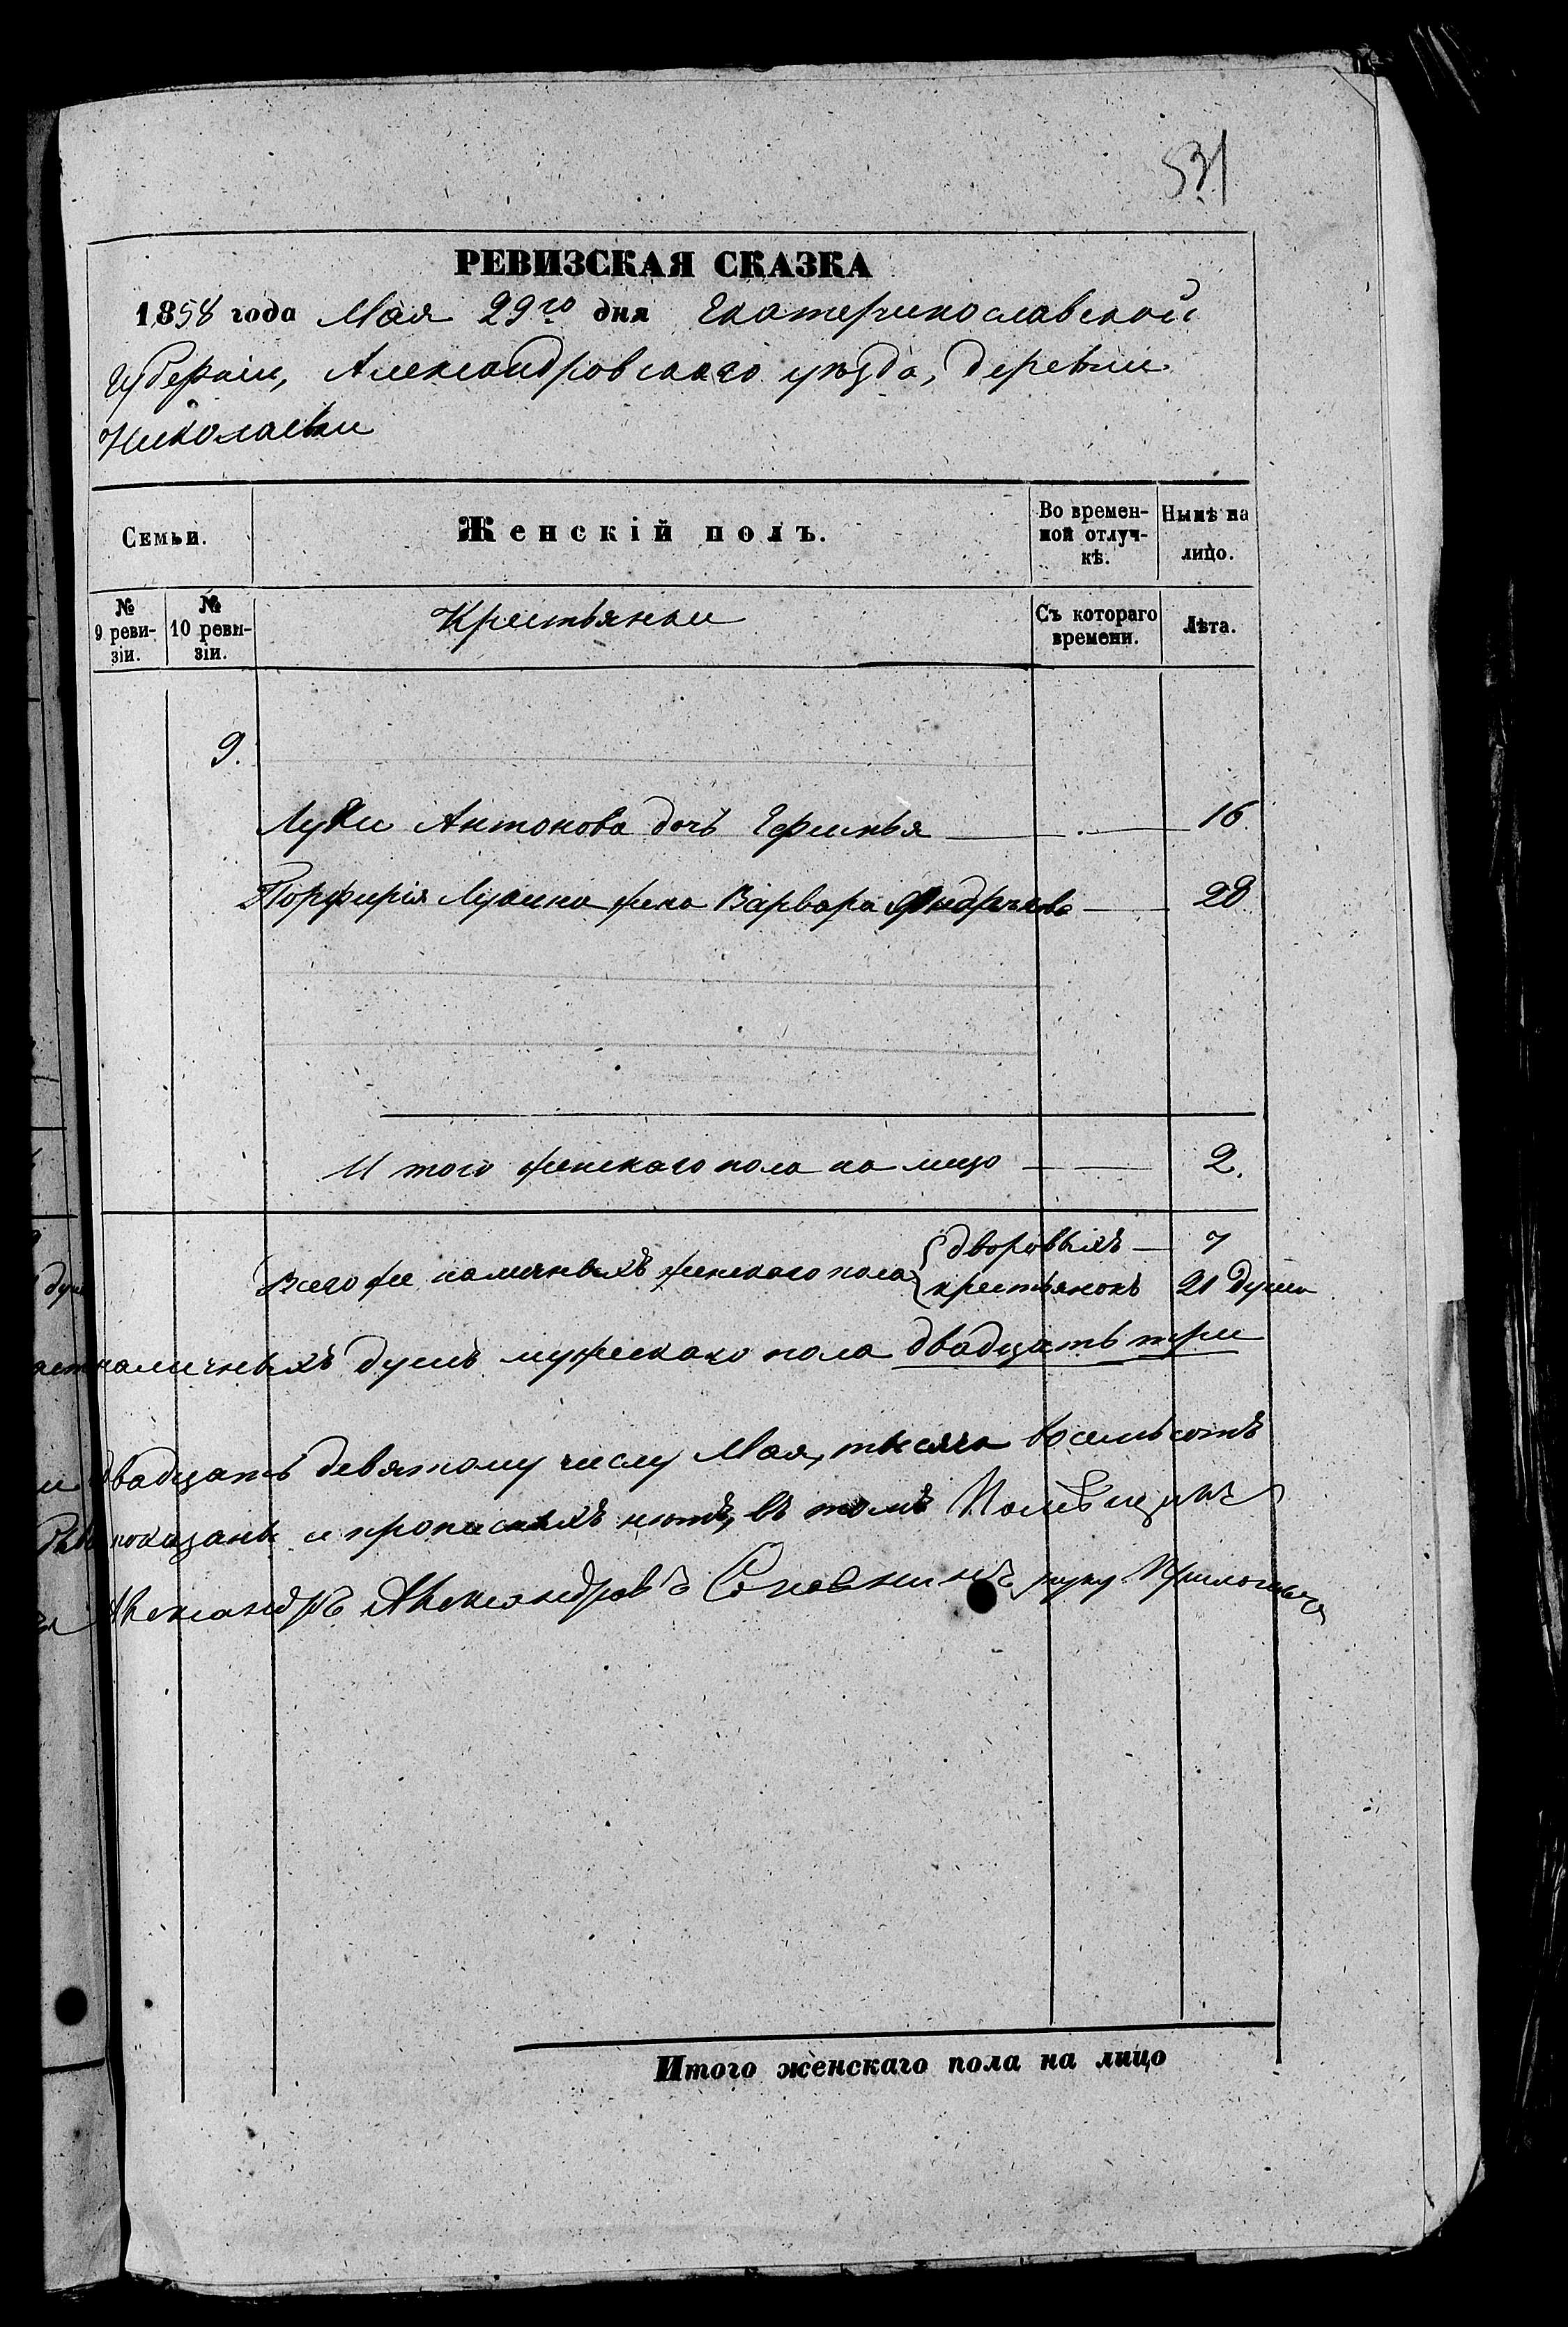 531
РЕВИЗСКАЯ СКАЗКА
1858 года Мая 29го дня Екатеринославской
Губерніи, Александровскаго уѣзда, деревни
Николаевки
Семьи.
Женскій полъ.
Во времен-
ной отлуч-
кѣ.
Нынѣ на
лицо.
№
9 реви-
зіи.
№
10 реви-
зіи.
Крестьянки
Съ котораго
времени.
Лѣта.
9.
Луки Антонова дочь Ефимья 16
Порфирія Лукина жена Варвара 28
Итого женскаго пола на лицо 2.
Всего же наличныхъ женскаго пола
дворовыхъ — 7
крестьянокъ 21 душа
наличныхъ душъ мужескаго пола двадцать три
двадцать девятому числу Мая, тысяча восемьсотъ
показанѣ и прописныхъ нѣтъ, въ томъ Помѣщикъ
Александръ Александровъ руку приложилъ
Итого женскаго пола на лицо